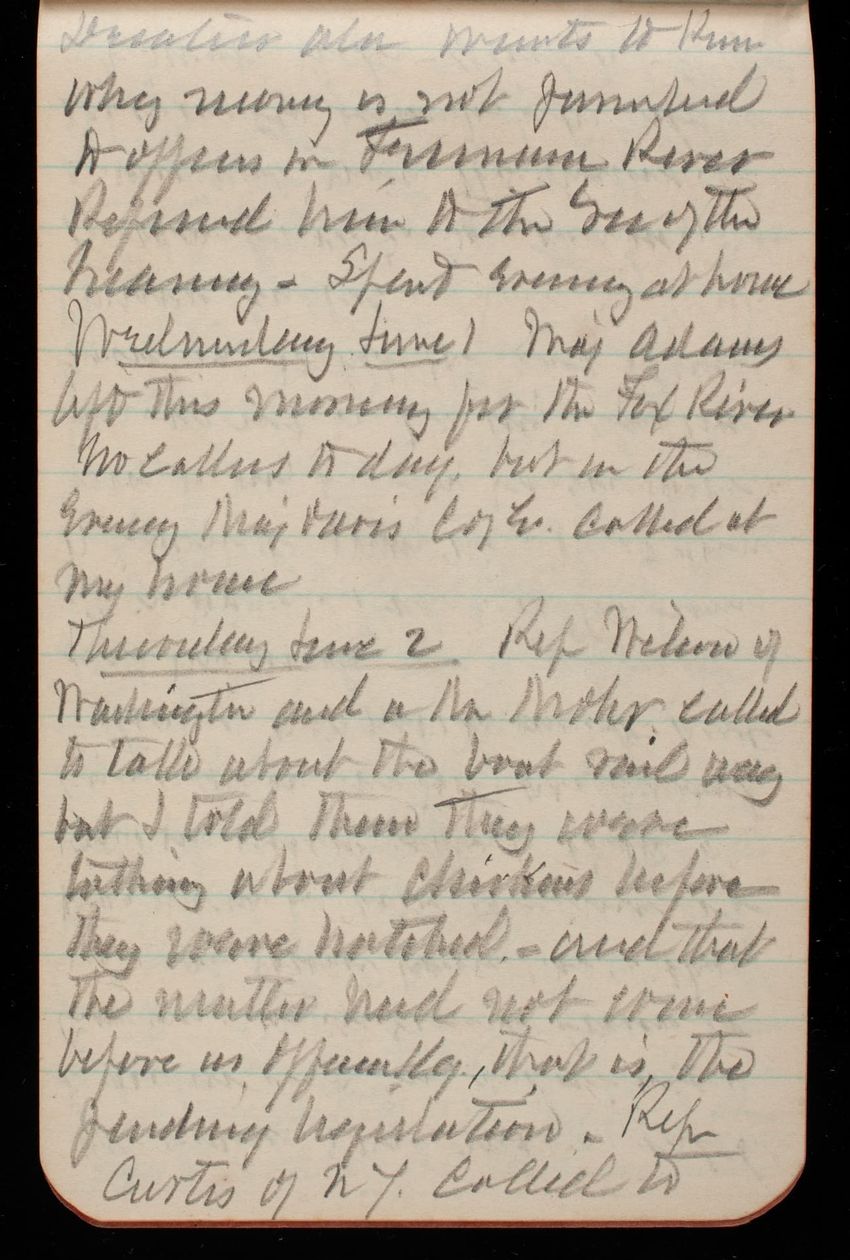 also wants to know
why money is not furnished
to officers on Tennessee River
Referred him to the Sec of the
Treasury - Spent Evening at home
Wednesday June 1 Maj Adams
left this morning for the Fox River
No callers to day, but in the
Evening Maj Davis C of E. called at
my house
Thursday June 2 Rep Wilson of
Washington and a Mr Mohr called
to talk about the boat rail way
but I told them they were
talking about chickens before
they were hatched. - and that
the matter had not come
before us officially, that is, the
pending legislation. - Rep
Curtis of N Y. Called to